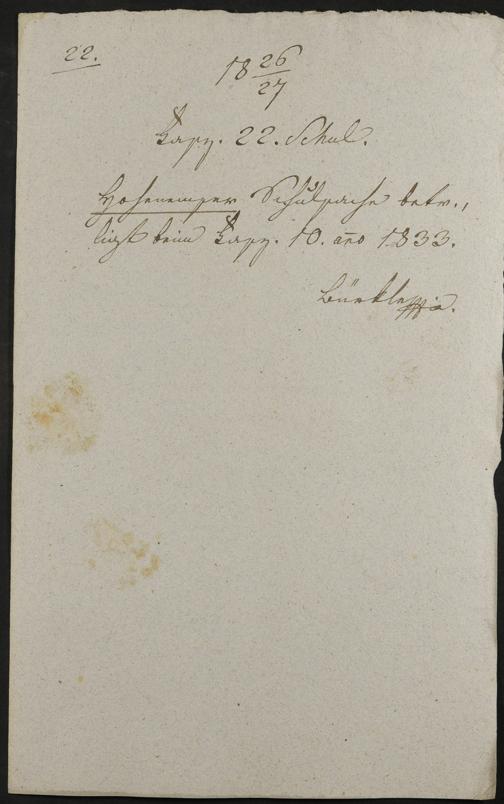 22.
18 26/27
Fasz. 22. Schul.
Hohenemser Schulsache betr.,
liegt beim Fasz. 10. año 1833.
Bürkle